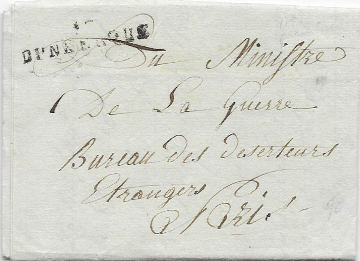 DUNKERQUE
Au Ministre
De La Guerre
Bureau des deserteurs
Etrangers
a Paris